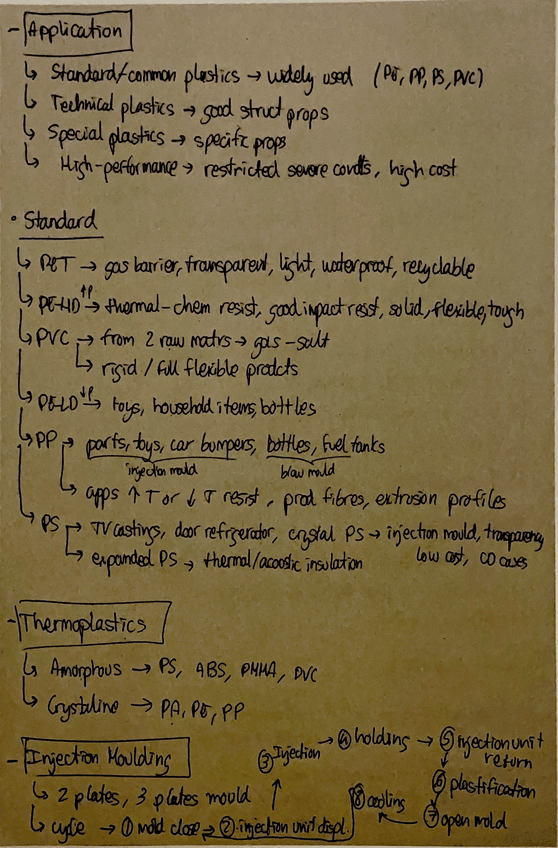 - Application
↳ Standard/common plastics → widely used (PE, PP, PS, PVC)
↳ Technical plastics → good struct props
↳ Special plastics → specific props
↳ High-performance → restricted severe condts, high cost
• Standard
↳ PET → gas barrier, transparent, light, waterproof, recyclable
↳ PE-HD ↑ρ → thermal-chem resist, good impact resist, solid, flexible, tough
↳ PVC → from 2 raw matrs → gas - salt
↳ rigid / full flexible prodcts
↳ PE-LD ↓ρ → toys, household items, bottles
↳ PP → parts, toys, car bumpers, bottles, fuel tanks
injection mould blow mould
↳ apps ↑ T or ↓ T resist, prod fibres, extrusion profiles
↳ PS → TV castings, door refrigerator, crystal PS → injection mould, transparency
low cost, CD cases
↳ expanded PS → thermal/acoostic insulation
- Thermoplastics
↳ Amorphous → PS, ABS, PMMA, PVC
↳ Crystaline → PA, PE, PP
- Injection Moulding
↳ 2 plates, 3 plates mould
↳ cycle → ① mold close → ② injection unit displ.
③ Injection → ④ holding → ⑤ injection unit return
⑥ plastification
⑦ open mold
⑧ cooling